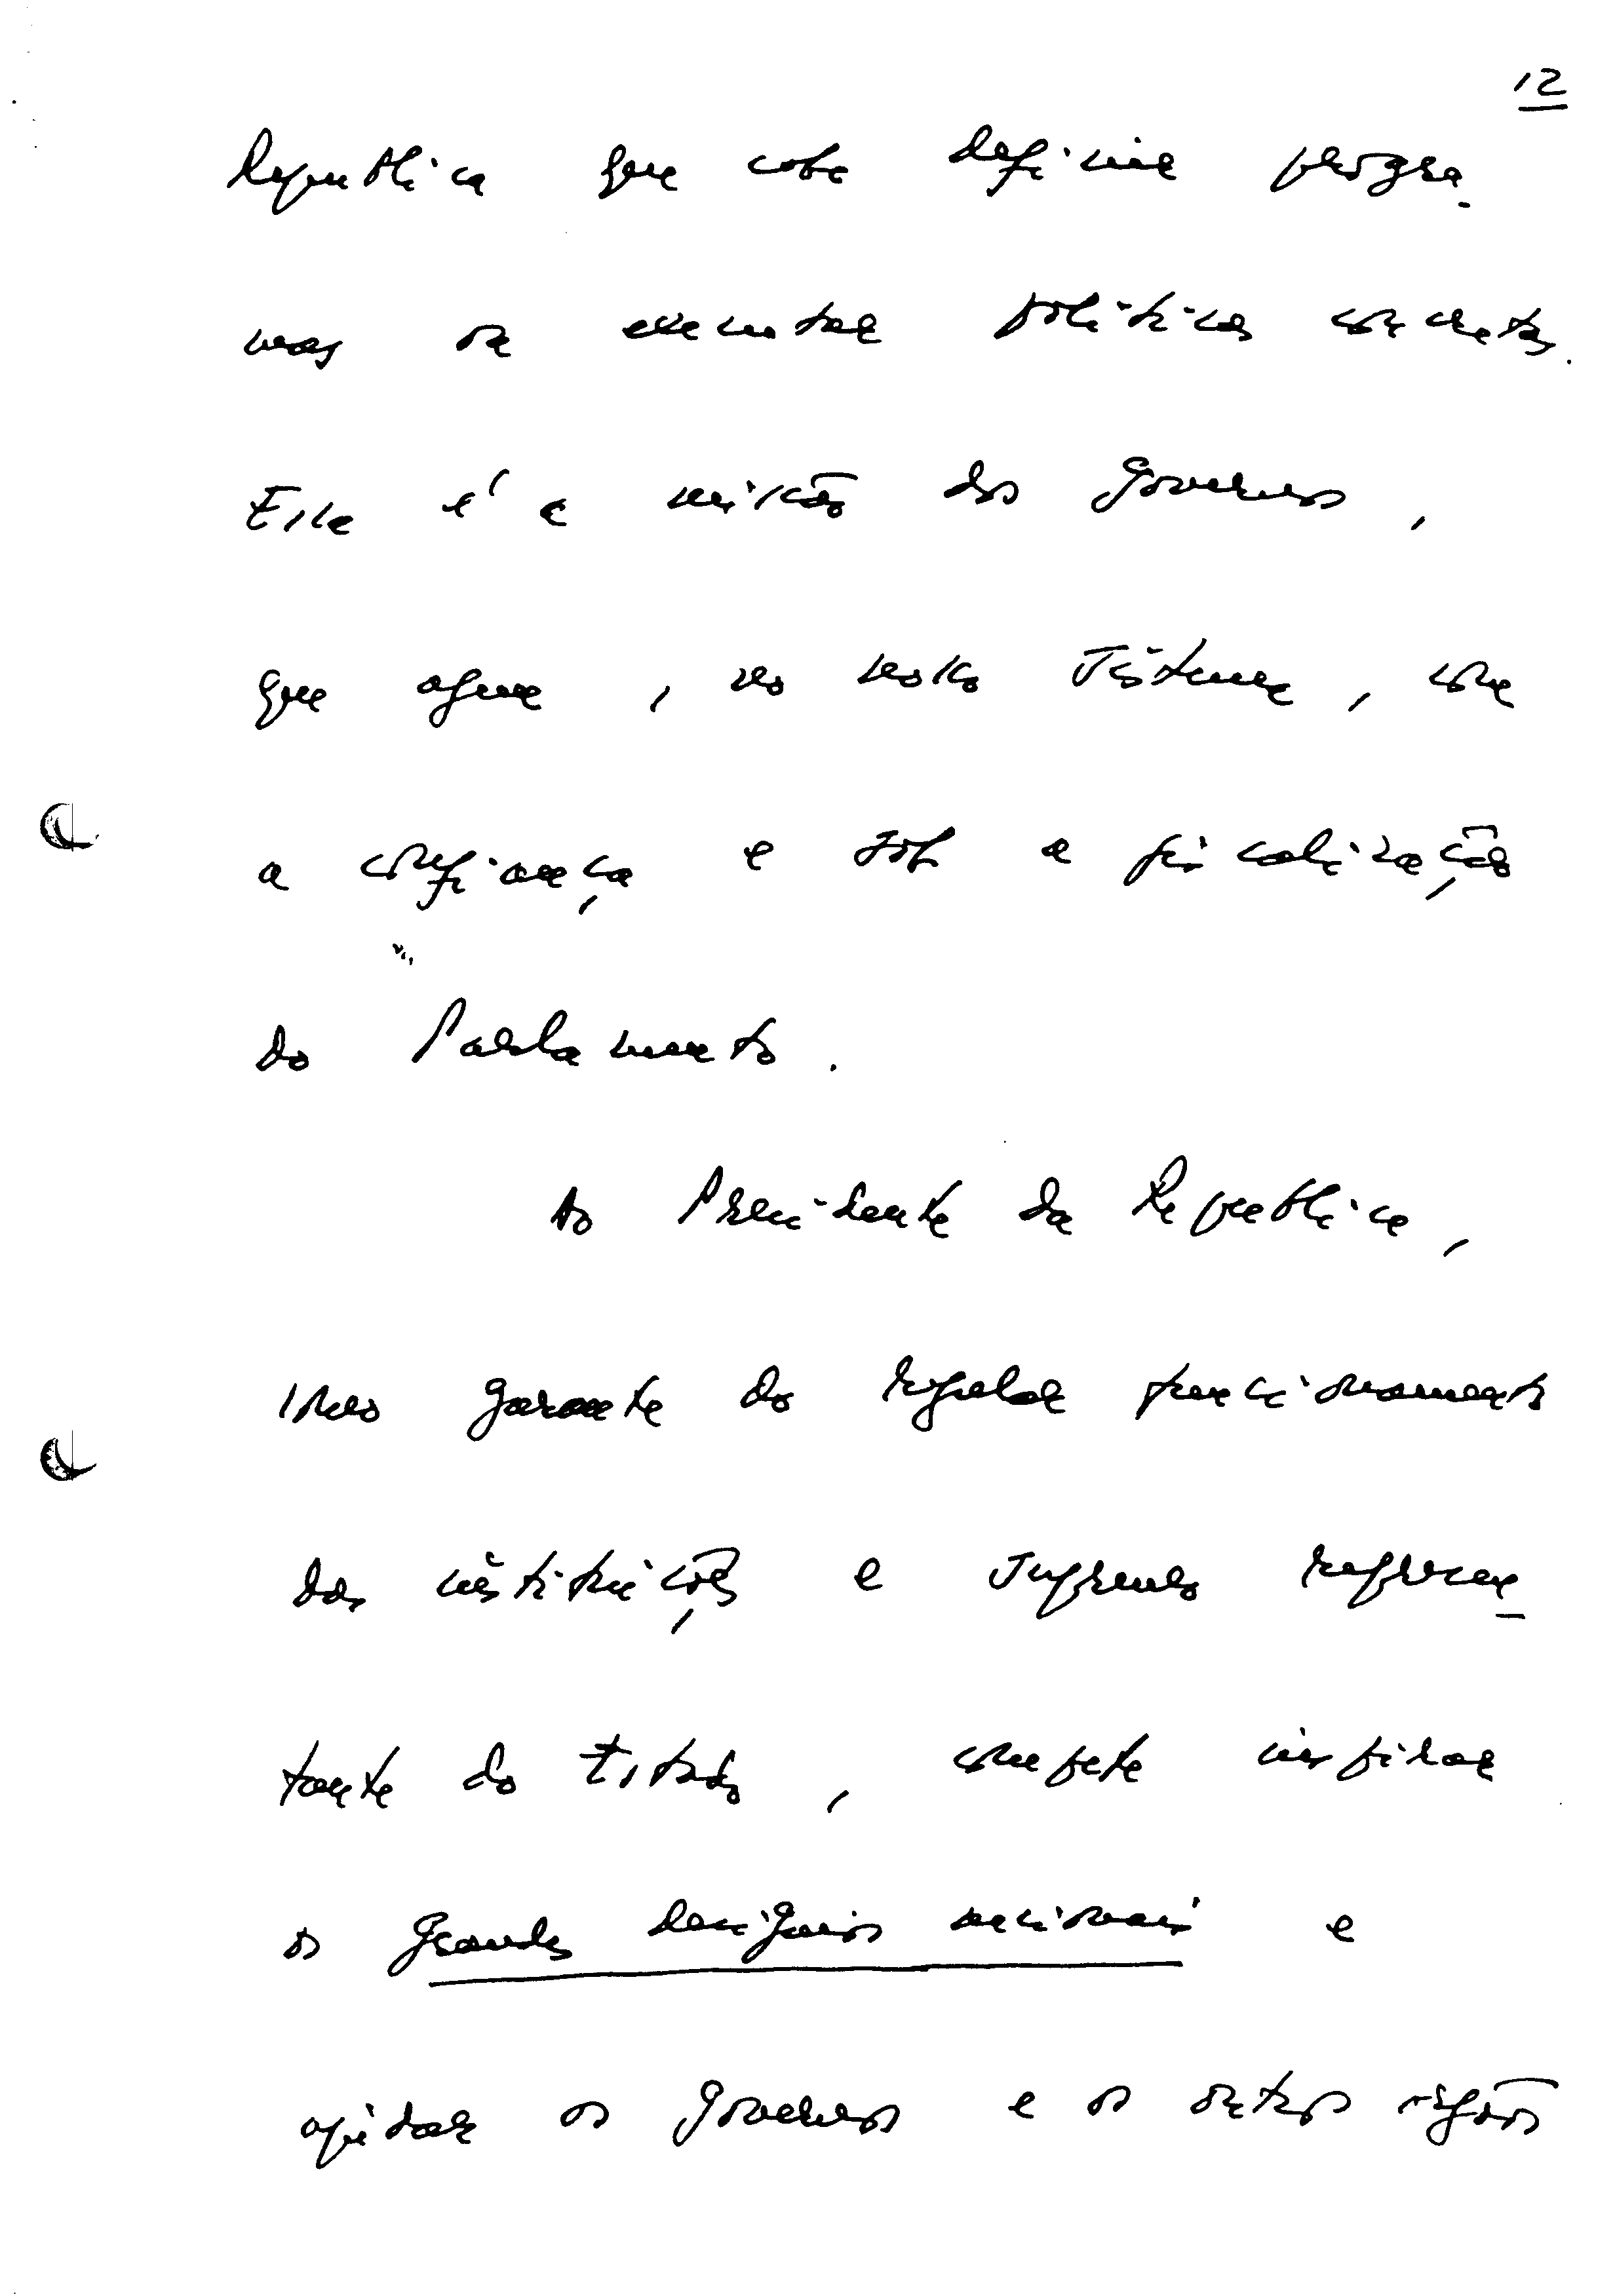 12
República que cabe definir progra-
mas ou executar políticas concretas.
Essa é a missão dos Governos,
que agem, no nosso sistema, com
a confiança e sob a fiscalização
do Parlamento.
Ao Presidente da República,
como garante do regular funcionamento
das instituições e supremo represen-
tante do Estado, compete inspirar
os grandes desígnios nacionais e
ajudar os Governos e os outros órgãos